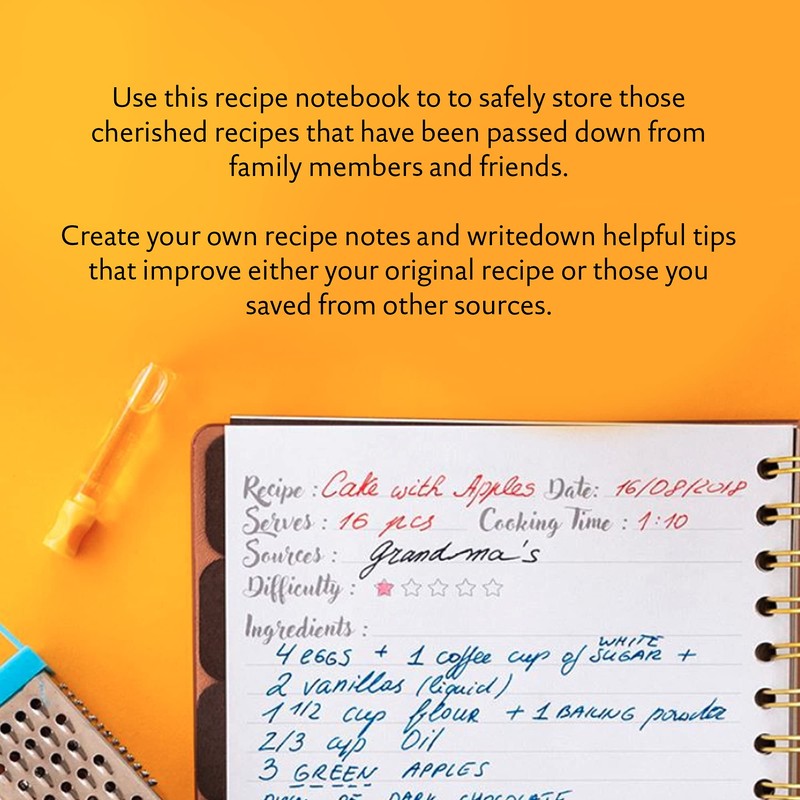 Use this recipe notebook to to safely store those
cherished recipes that have been passed down from
family members and friends.
Create your own recipe notes and writedown helpful tips
that improve either your original recipe or those you
saved from other sources.
Recipe : Cake with Apples Date: 16/08/2018
Serves : 16 pcs Cooking Time : 1:10
Sources : grandma's
Difficulty :
Ingredients :
4 eGGS + 1 coffee cup of WHITE SUGAR +
2 vanillas (liquid)
1 1/2 cup flour + 1 BAKING powder
2/3 cup Oil
3 GREEN APPLES
DARK CHOCOLATE